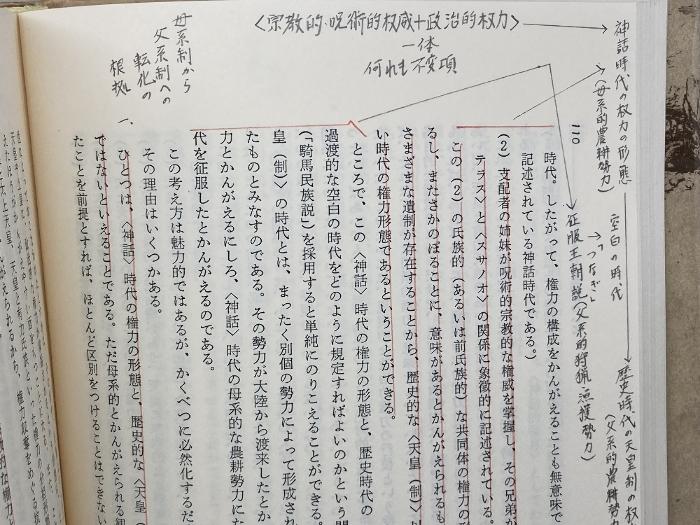 〈宗教的・呪術的权威+政治的权力〉
一体
何れも不変項
母系制から
父系制への
転化の
根拠
一、
神話時代の权力の形態
(母系的農耕勢力)
空白の時代
「つなぎ」
征服王朝説(父系的狩猟漁撈勢力)
歴史時代の天皇制の权
(父系的農耕勢
二〇
時代。したがって、権力の構成をかんがえることも無意味で
記述されている神話時代である。)
(2) 支配者の姉妹が呪術的宗教的な権威を掌握し、その兄弟が
テラス〉と〈スサノオ〉の関係に象徴的に記述されている。
この(2)の氏族的(あるいは前氏族的)な共同体の権力の形
るし、またさかのぼることに、意味があるとかんがえられるも
さまざまな遺制が存在することから、歴史的な〈天皇(制)〉
い時代の権力形態であるということができる。
ところで、この〈神話〉時代の権力の形態と、歴史時代の
過渡的な空白の時代をどのように規定すればよいのかという問
(「騎馬民族説」)を採用すると単純にのりこえることができる。
皇(制)〉の時代とは、まったく別個の勢力によって形成され
たものとみなすのである。その勢力が大陸から渡来したとか
力とかんがえるにしろ、〈神話〉時代の母系的な農耕勢力にた
代を征服したとかんがえるのである。
この考え方は魅力的ではあるが、かくべつに必然化するだ
その理由はいくつかある。
ひとつは、〈神話〉時代の権力の形態と、歴史的な〈天皇(
ではないといえることである。ただ母系的とかんがえられる
たことを前提とすれば、ほとんど区別をつけることはできない